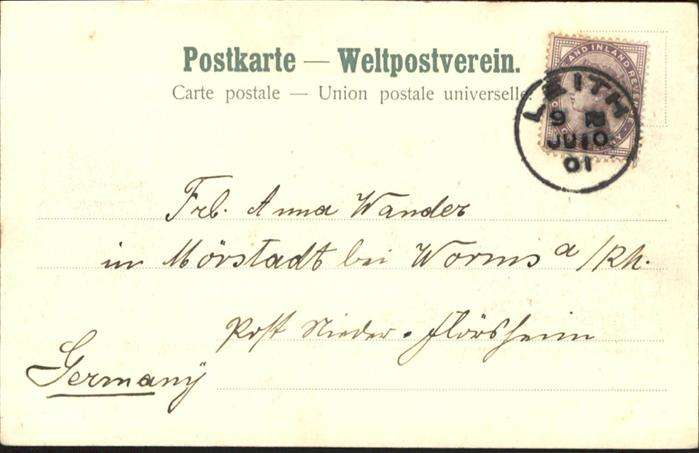 Postkarte — Weltpostverein.
Carte postale — Union postale universelle.
AND INLAND REVE
LEITH
9
JU 10
01
Frl. Anna Wander
in Mörstadt bei Worms a/Rh.
Post Nieder-Flörsheim
Germany